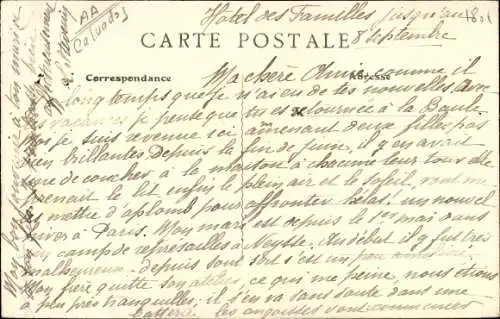 Hôtel des Familles jusqu'au
8 septembre
AA
Calvados
CARTE POSTALE
Correspondance
Adresse
Ma chère Amie, comme il
longtemps que je n'ai eu de tes nouvelles. Avec
vacances je pense que tu es retournée à la Baule
je suis revenue ici amenant deux filles pas
bien brillantes. Depuis la fin de juin, il y en avait
une de couchée à la maison à chacune leur tour elle
prenait le lit enfin le plein air et le soleil, vont me
mettre d'aplomb pour affronter hélas! un nouvel
hiver à Paris. Mon mari est depuis le 1er mai dans
un camp de représailles à Neysse. Au début il y fut très
malheureux depuis tout s'est un peu amélioré
Mon frère quitte son atelier, ce qui me peine, nous étions
à plus près tranquilles; il s'en va sans doute dans une
batterie, les angoisses vont commencer